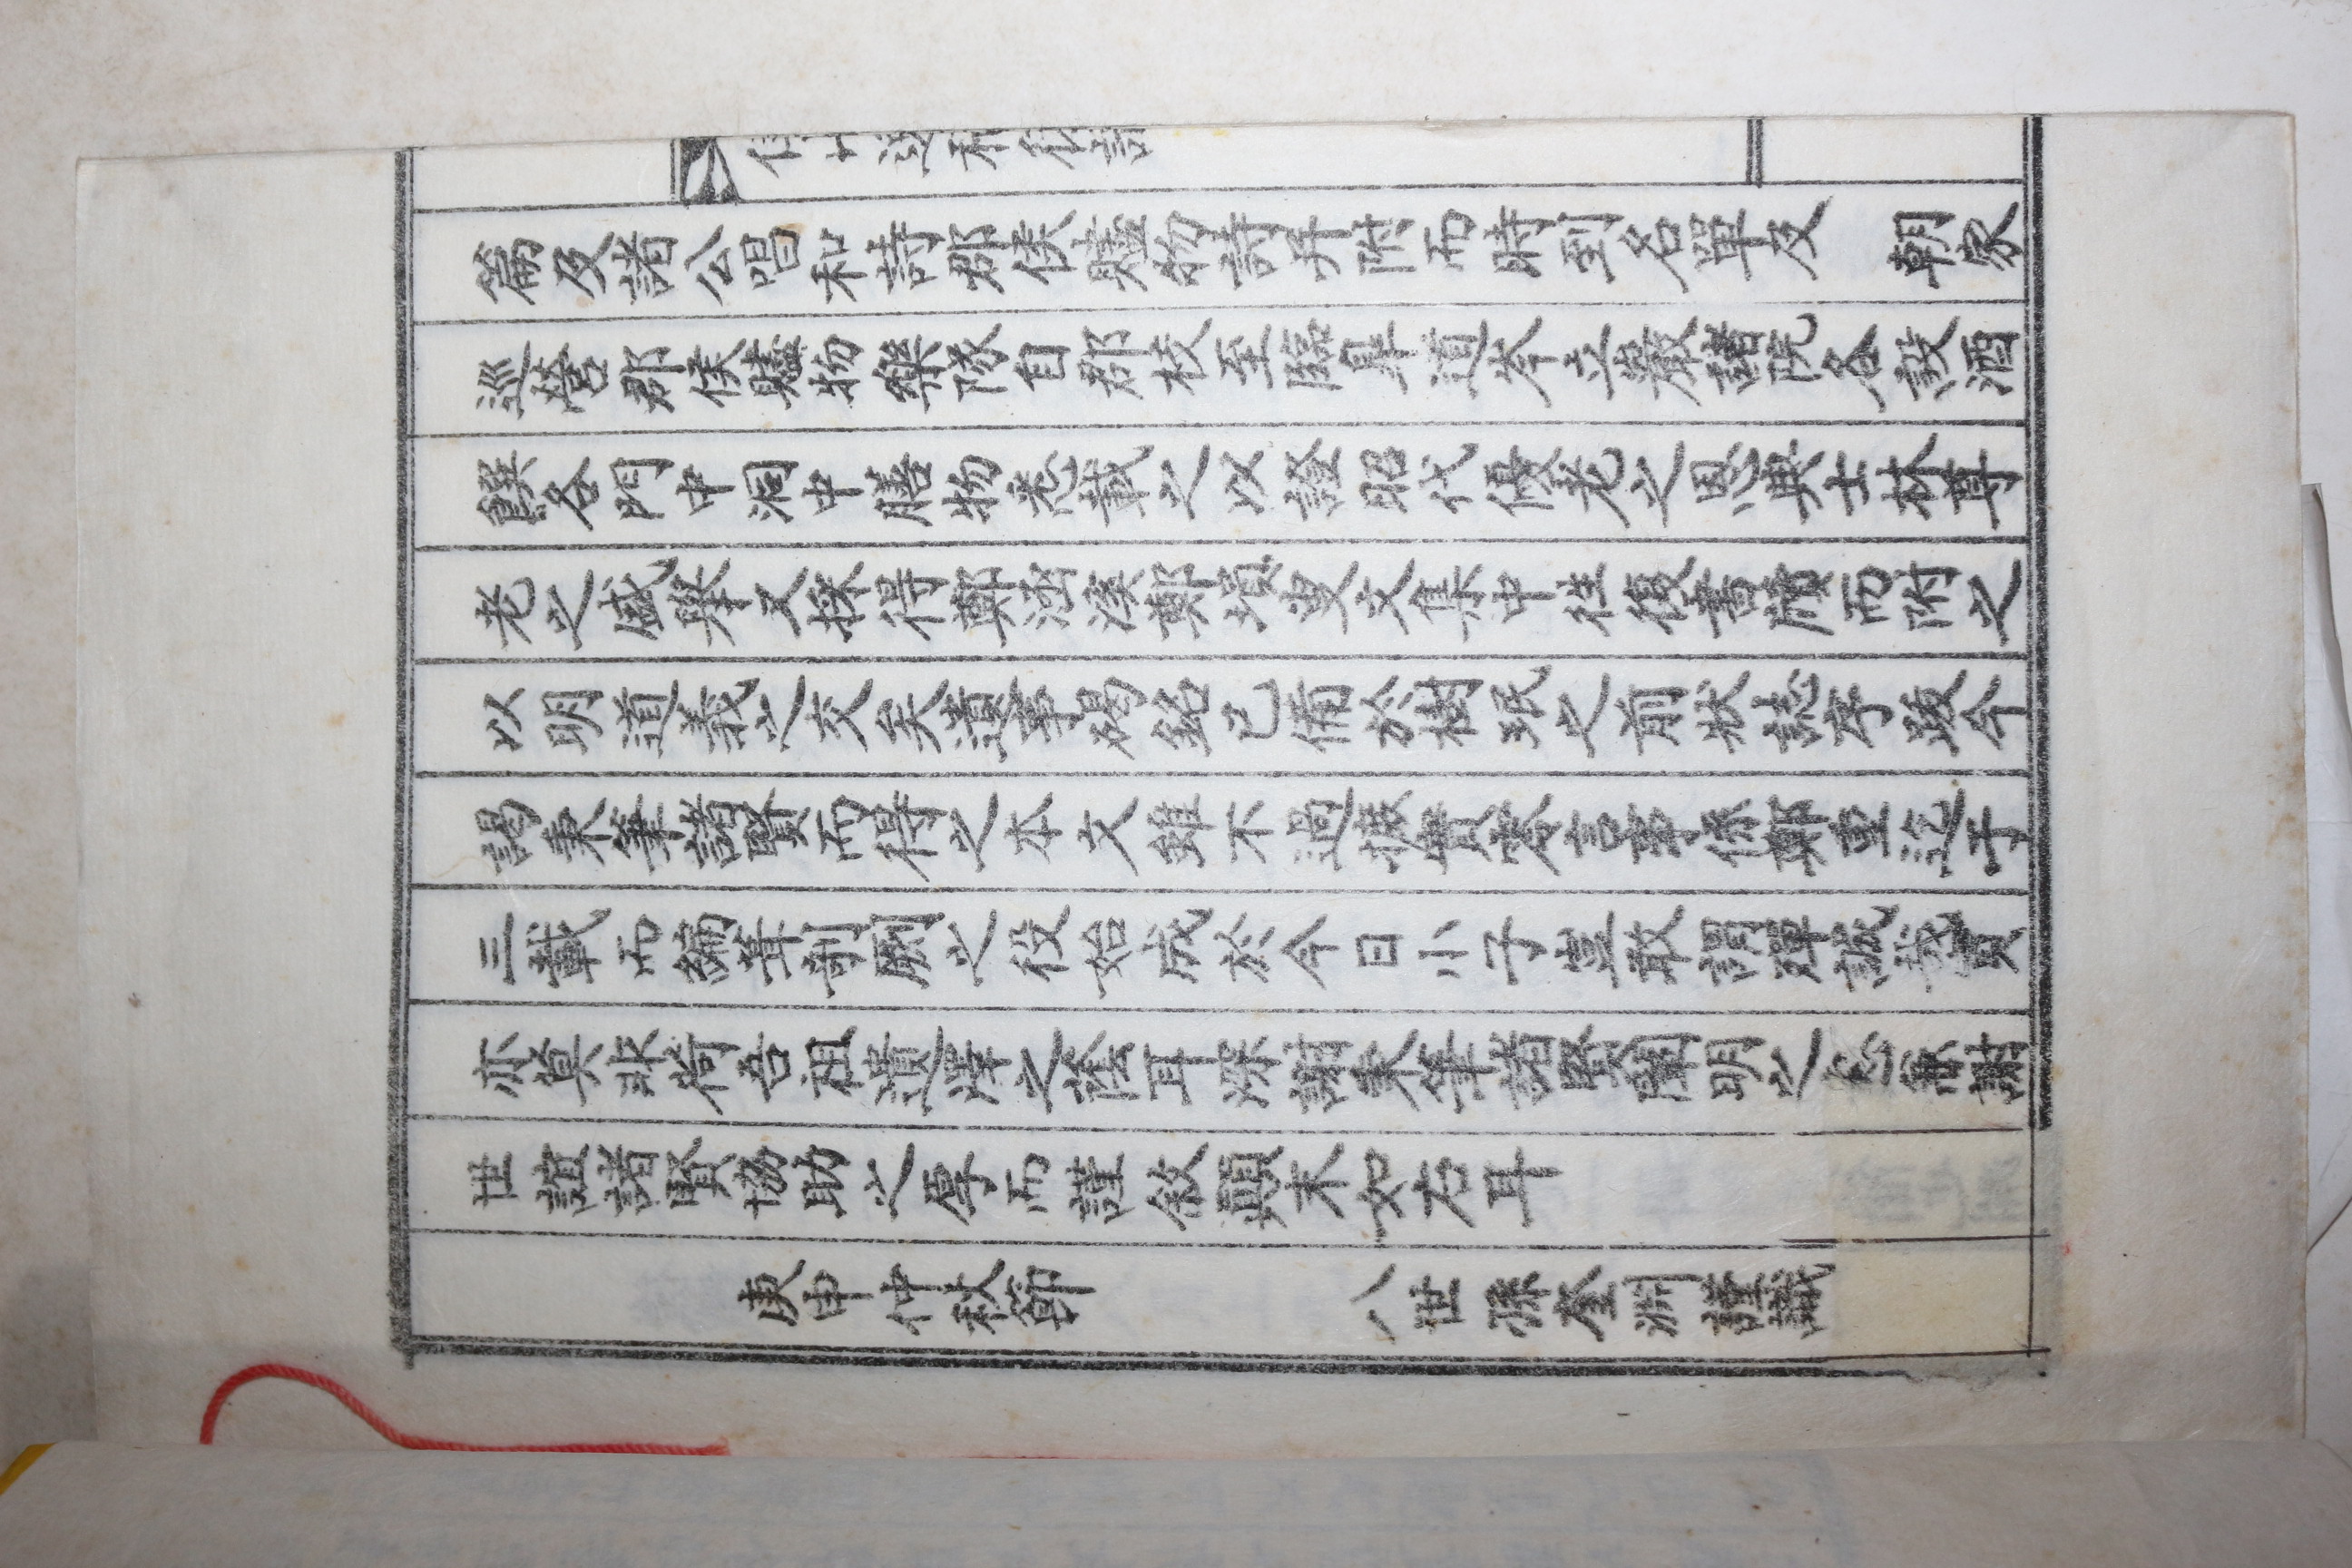 篇及諸公唱和詩郡侯贐物詩幷附而時到名單及　朝家
巡營郡侯贐物樂隊自郡校至臨皐道岑立巖諸院各設酒
饌各門中洞中膳物悉載之以證昭代優老之恩典士林尊
老之盛擧又採得鄭涵溪鄭塤叟文集中往復書牘而附之
以明道義之交矣遺事碣銘已備於樹珉之前狀誌序跋今
謁秉筆諸賢而得之本文雖不過摭實零言事係鄭重迄于
三載而編葺剞劂之役始成於今日小子豈敢謂殫誠哉實
亦莫非荷吾祖遺澤之蔭耳深謝秉筆諸賢闡明之惠兼謝
世誼諸賢協助之厚而謹敘顚末如右耳
庚申仲秋節　八世孫奎淵謹識